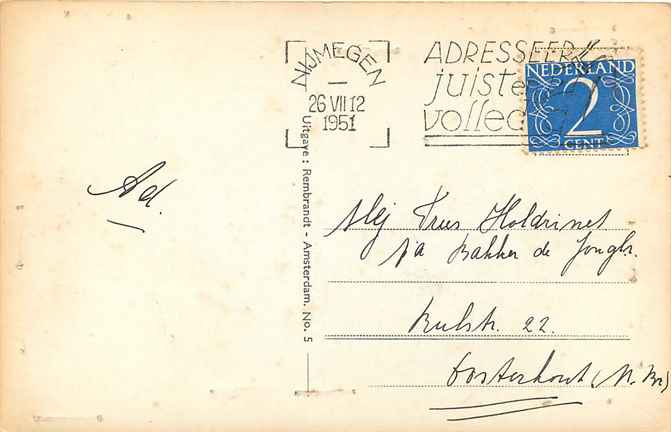 NIJMEGEN
26 VII 12
1951
ADRESSEER
juist en
volled
NEDERLAND
2
CENT
Uitgave: Rembrandt - Amsterdam. No. 5
Ad.
Mej Truus Holdrinet
p/a Bakker de Jongh.
22.
Oosterhout (N. Br)